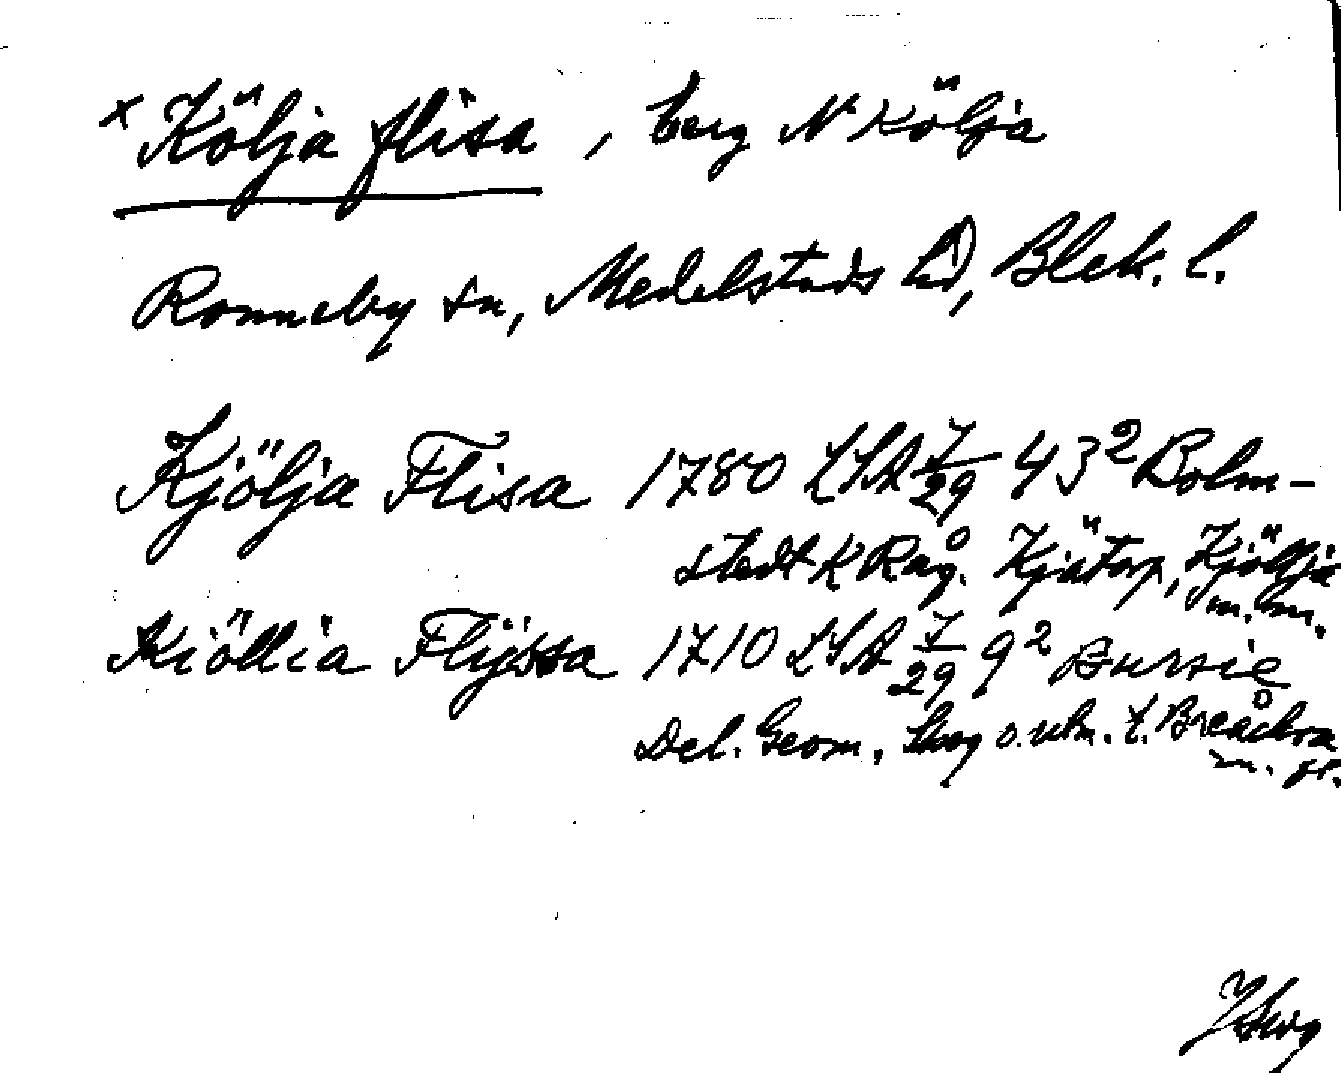 x Kölja flisa, berg N Kölja
Ronneby sn, Medelstads hd, Blek. l.
Kjölja Flisa 1780 LSA 7/29 43² Bolm-
stedt K Råg. Kjätorp, Kjöllja
m.m.
Kiöllia Flÿssa 1710 LSA 7/29 9² Bursie
Del. Geom. Skog o. utm. t. Breåckra
m. fl.